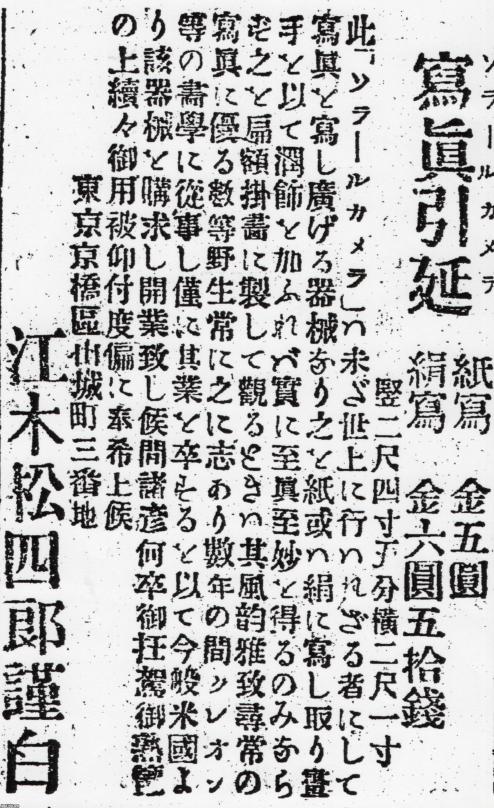 ソラールカメラ
寫眞引延
紙寫 金五圓
絹寫 金六圓五拾錢
竪二尺四寸五分橫二尺一寸
此「ソラールカメラ」ハ未ダ世上に行ハれざる者にして
寫眞を寫し廣げる器械なり之を紙或ハ絹に寫し取り畫
手を以て潤飾を加ふれバ實に至眞至妙を得るのみなら
ず之を扁額掛畫に製して觀るときハ其風韵雅致尋常の
寫眞に優る數等野生常に之に志あり數年の間クレオン
等の畵學に從事し僅に其業を卒するを以て今般米國よ
り該器械を購求し開業致し候間諸彥何卒御抂駕御熟覽
の上續々御用被仰付度偏に奉希上候
東京京橋區山城町三番地
江木松四郎謹白